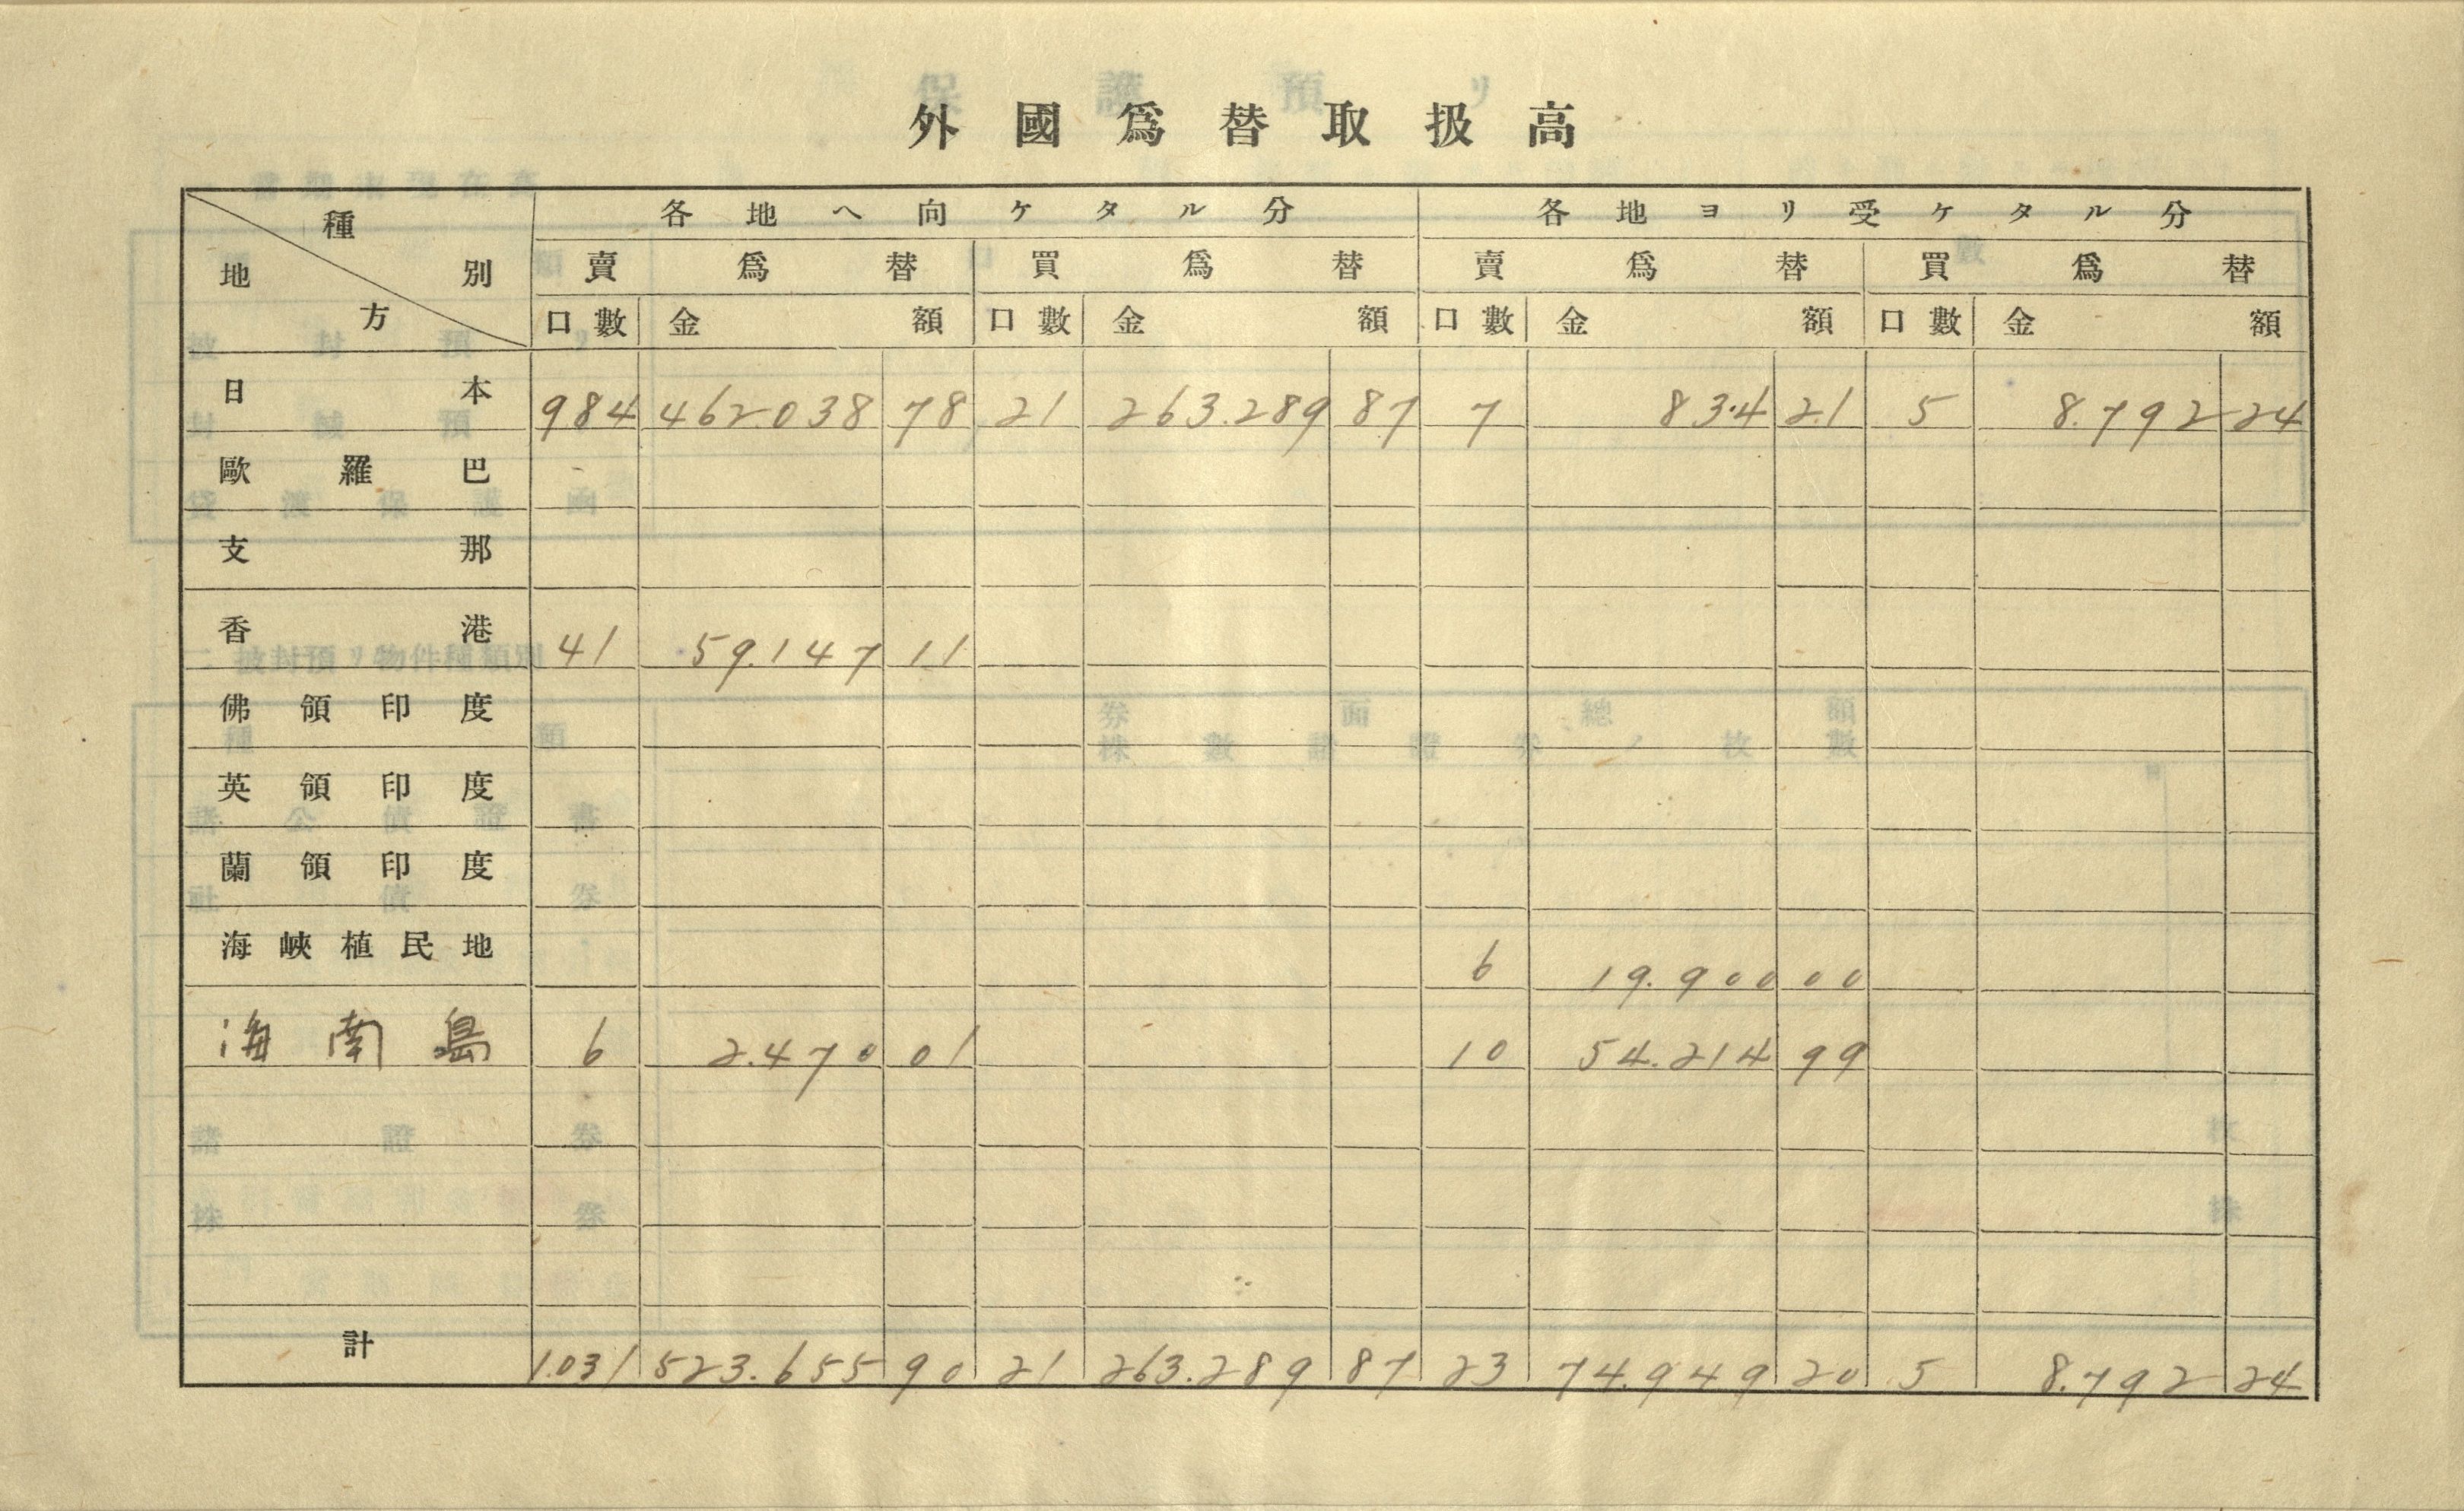 外國爲替取扱高
種別 地方 各地ヘ向ケタル分 各地ヨリ受ケタル分
賣爲替 買爲替 賣爲替 買爲替
口數 金額 口數 金額 口數 金額 口數 金額
日本 984 462.038 78 21 263.289 87 7 834 21 5 8.792 24
歐羅巴
支那
香港 41 59.147 11
佛領印度
英領印度
蘭領印度
海峽植民地 6 19.900 00
海南島 6 2.470 01 10 54.214 99
計 1.031 523.655 90 21 263.289 87 23 74.949 20 5 8.792 24